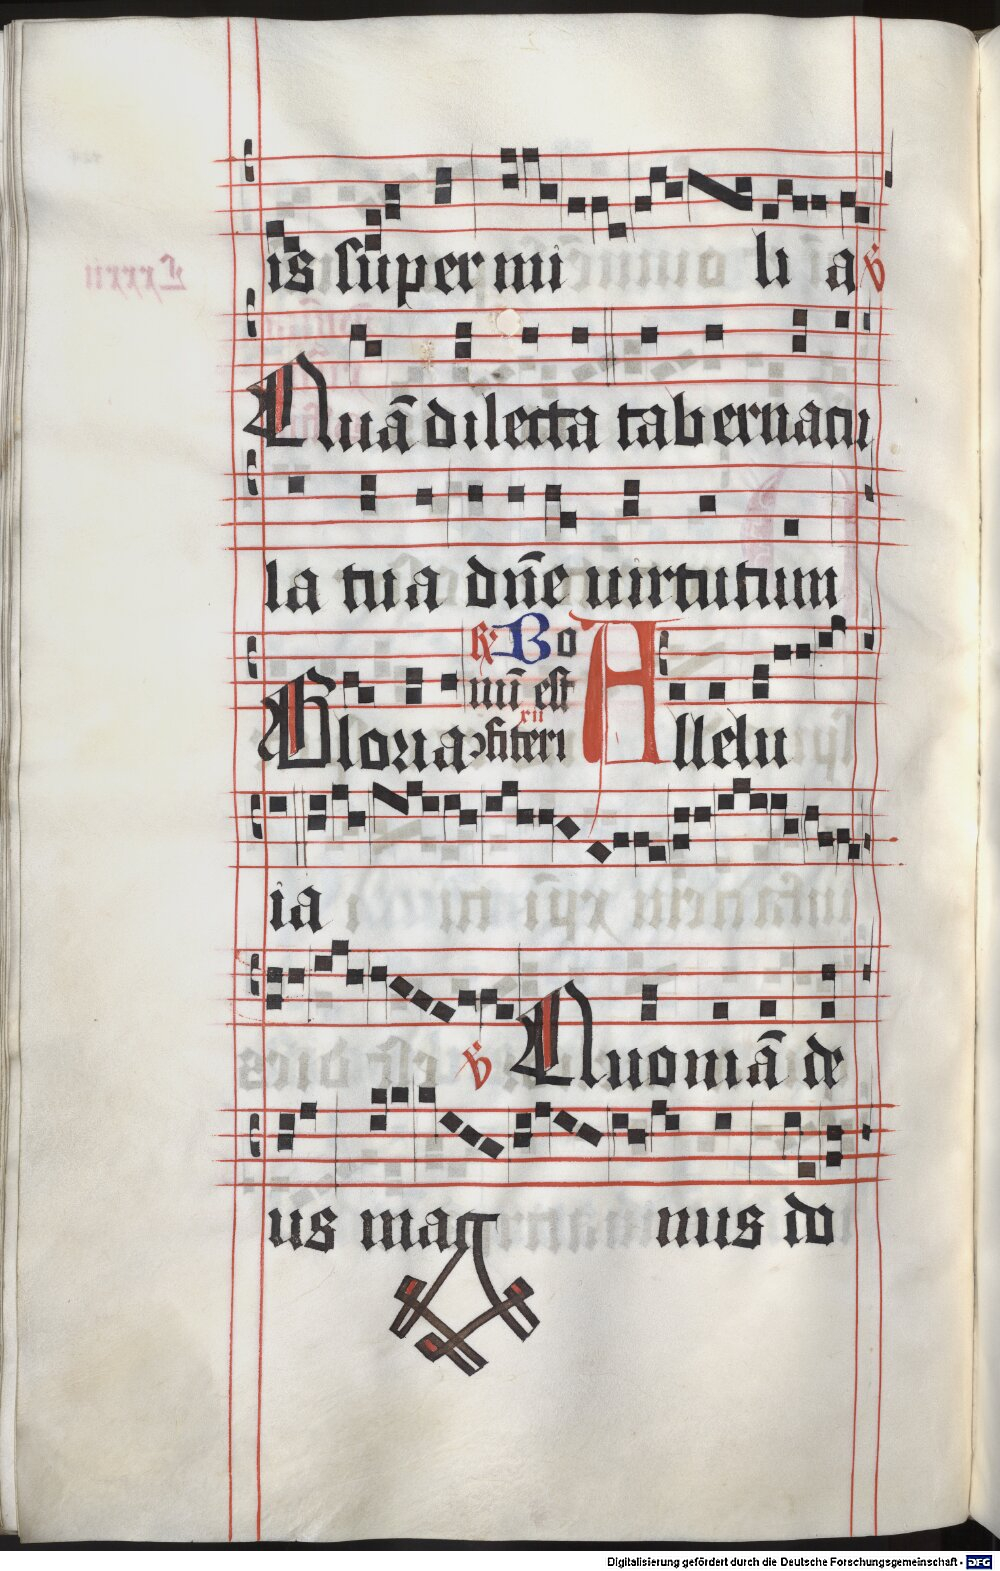 is super mi li a v̇
Quā dilecta tabernacu
la tua dn̄e uirtutum
℟ Bo
nū est
xii
Gloria ꝯfiteri Allelu
ia
v̇ Quoniā de
us mag nus do
Digitalisierung gefördert durch die Deutsche Forschungsgemeinschaft - DFG